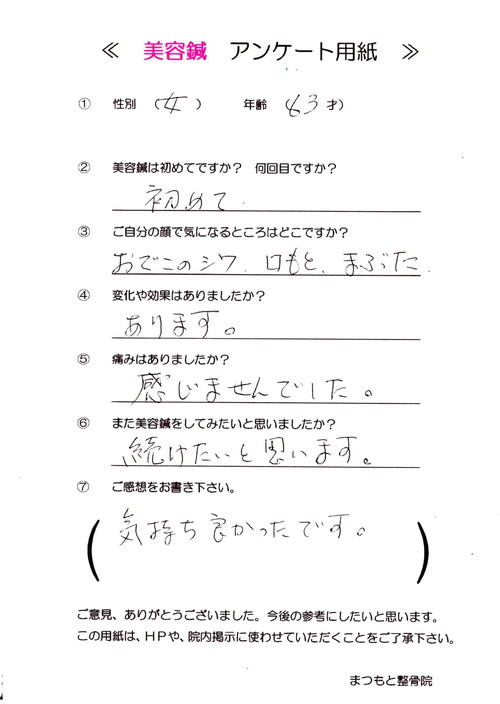 ≪ 美容鍼 アンケート用紙 ≫
① 性別 (女) 年齢 (63才)
② 美容鍼は初めてですか? 何回目ですか?
初めて.
③ ご自分の顔で気になるところはどこですか?
おでこのシワ、口もと、まぶた.
④ 変化や効果はありましたか?
あります。
⑤ 痛みはありましたか?
感じませんでした。
⑥ また美容鍼をしてみたいと思いましたか?
続けたいと思います。
⑦ ご感想をお書き下さい。
(気持ち良かったです。)
ご意見、ありがとうございました。今後の参考にしたいと思います。
この用紙は、HPや、院内掲示に使わせていただくことをご了承下さい。
まつもと整骨院